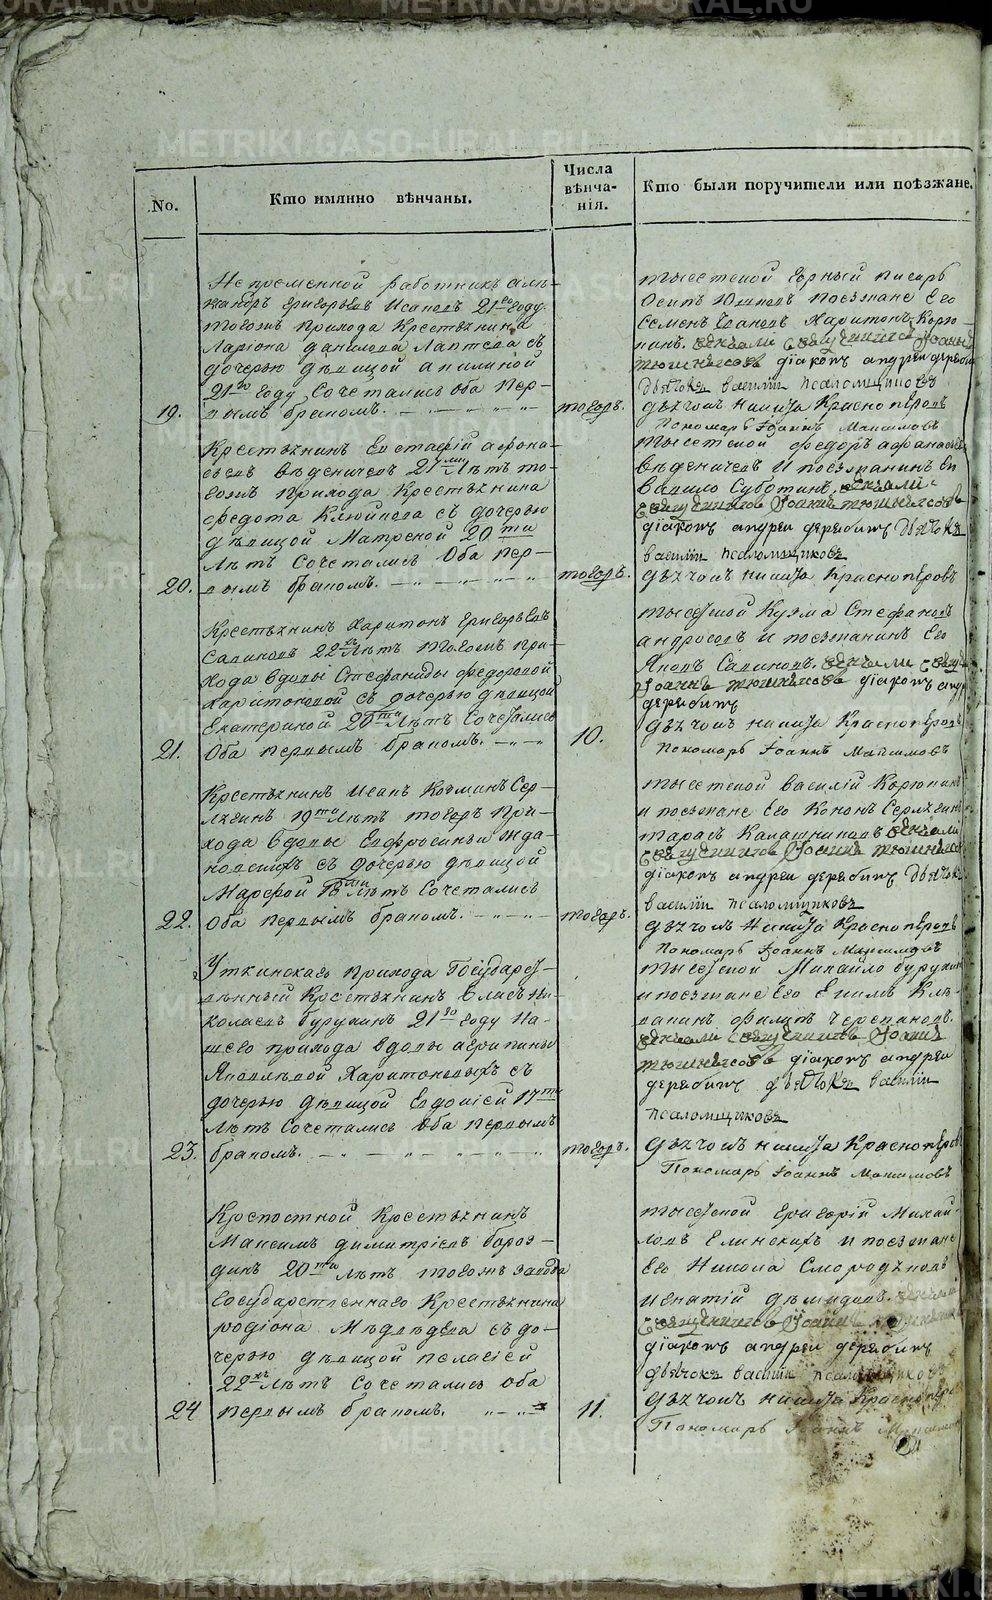 No.
Кто имянно вѣнчаны.
Числа
вѣнча-
нія.
Кто были поручители или поѣзжане.
Непременной работникъ
Григорьевъ Исаковъ 21го году
тогожъ прихода Крестьянина
Лариона Данилова Лаптева съ
дочерью девицой Акилиной
21го году Сочетались Оба пер-
19. вымъ бракомъ.
тогожъ.
тысецкой Горный писарь
Осипъ поезжане Его
Семенъ Ивановъ Харитонъ Корю-
кинъ. венчали священникъ Iоаннъ
діаконъ андреи дерябинъ
дьячокъ василіи псаломщиковъ
дьячокъ никита Красноперовъ
Пономарь Iоаннъ Максимовъ
Крестьянинъ Евстафій афона-
сьевъ Веденичевъ 21 летъ то-
гожъ прихода Крестьянина
федота Клюйкова съ дочерью
девицой Матреной 20ти
летъ Сочетались Оба пер-
20. вымъ бракомъ.
тогожъ.
тысецкой федоръ афанасьевъ
Веденичевъ и поезжанинъ Ев
Вавило Суботинъ. венчали
священникъ Iоаннъ
діаконъ андреи дерябинъ дьячокъ
василіи псаломщиковъ
дьячокъ никита Красноперовъ
Крестьянинъ Харитонъ Григорьевъ
Савиновъ 22хъ летъ тогожъ при-
хода вдовы Стефаниды федоровой
Харитоновой съ дочерью девицой
Екатериной 20ти летъ Сочетались
21. Оба первымъ бракомъ.
10.
тысецкой Кузма Стефановъ
андросовъ и поезжанинъ Его
Яковъ Савиновъ. венчали
Iоаннъ діаконъ
дерябинъ
дьячокъ никита Красноперовъ
Пономарь Iоаннъ Максимовъ
Крестьянинъ Исакъ Козминъ Сер-
19ти летъ тогожъ при-
хода вдовы Евфросиньи
съ дочерью девицой
Марфой 18ти летъ Сочетались
22. Оба первымъ бракомъ.
тогожъ.
тысецкой василій Корюкинъ
и поезжане Его Кононъ
тарасъ Калашниковъ венчали
священникъ Iоаннъ
діаконъ андреи дерябинъ дьячокъ
василіи псаломщиковъ
дьячокъ Никита Красноперовъ
Пономарь Iоаннъ Максимовъ
Уткинскаго прихода Государст-
венный Крестьянинъ Власъ Ни-
колаевъ Бурухинъ 21го году На-
шего прихода вдовы агрипины
Яковлевой Харитоновыхъ съ
дочерью девицой Евдокіей 17ти
летъ Сочетались Оба первымъ
23. бракомъ.
тогожъ.
тысецкой Михайло бурухинъ
и поезжане Его Екимъ
филипъ черепановъ.
венчали священникъ Iоаннъ
діаконъ андреи
дерябинъ дьячокъ василіи
псаломщиковъ
дьячокъ никита Красноперовъ
Пономарь Iоаннъ Максимовъ
Крепостной Крестьянинъ
Максимъ димитріевъ бороз-
динъ 20ти летъ тогожъ завода
Государственнаго Крестьянина
родіона Медведева съ до-
черью девицой пелагіей
22хъ летъ Сочетались Оба
24 первымъ бракомъ.
11.
тысецкой Григорій Михай-
ловъ Елинскихъ и поезжане
Его Никола Смородяковъ
игнатій демидовъ.
священникъ Iоаннъ
діаконъ андреи дерябинъ
дьячокъ василіи псаломщиковъ
дьячокъ никита Красноперовъ
Пономарь Iоаннъ Максимовъ
METRIKI.GASO-URAL.RU